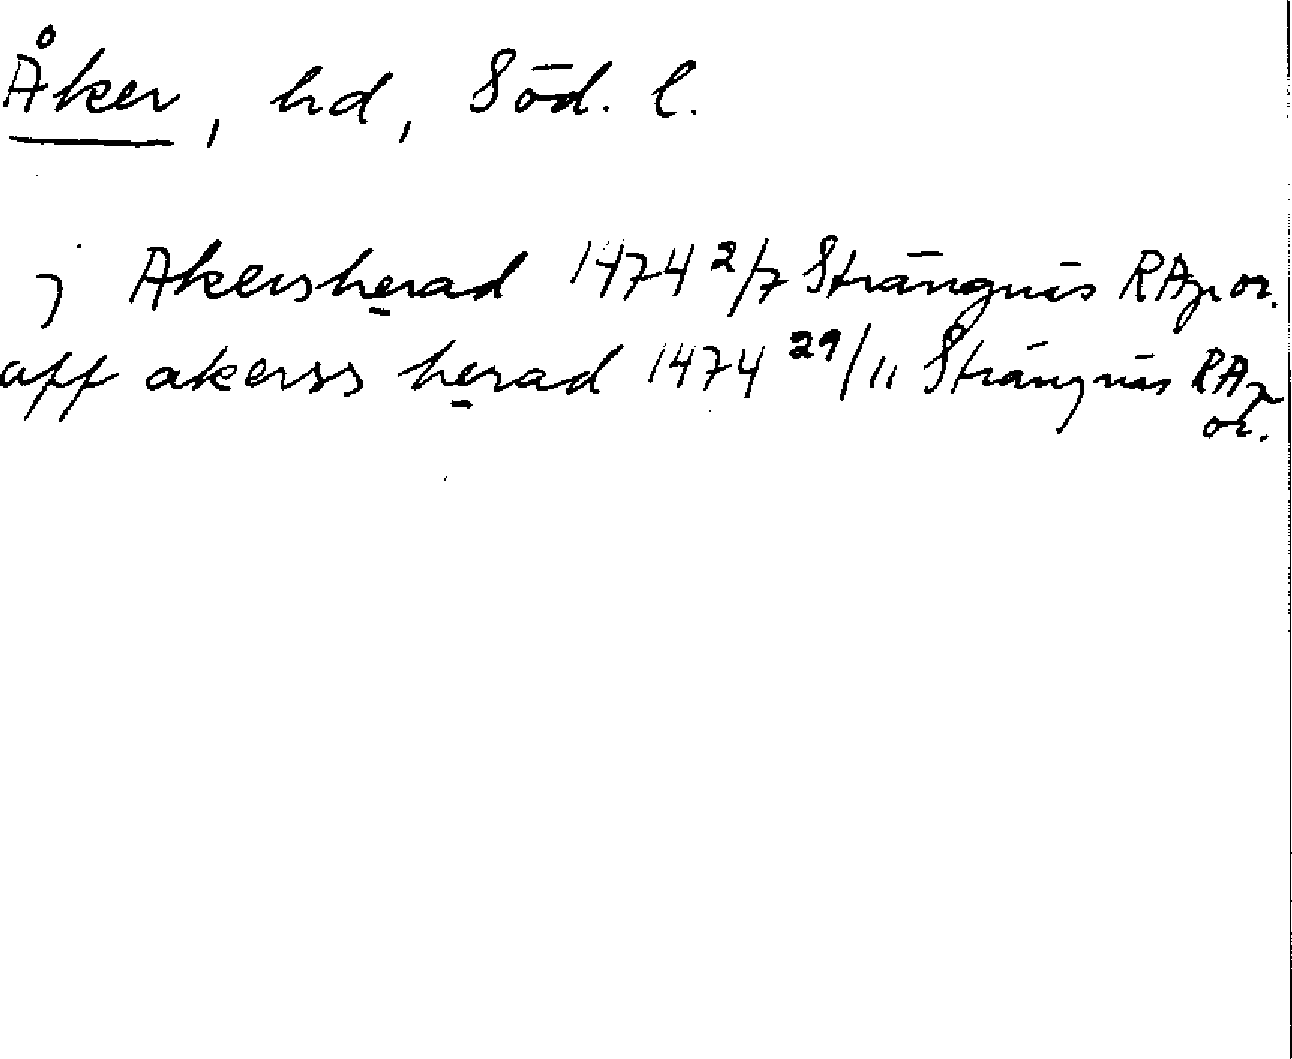 Åker, hd, Söd. l.
j Akersherad 1474 2/7 Strängnäs RAp or.
aff akerss herad 1474 29/11 Strängnäs RAp
or.